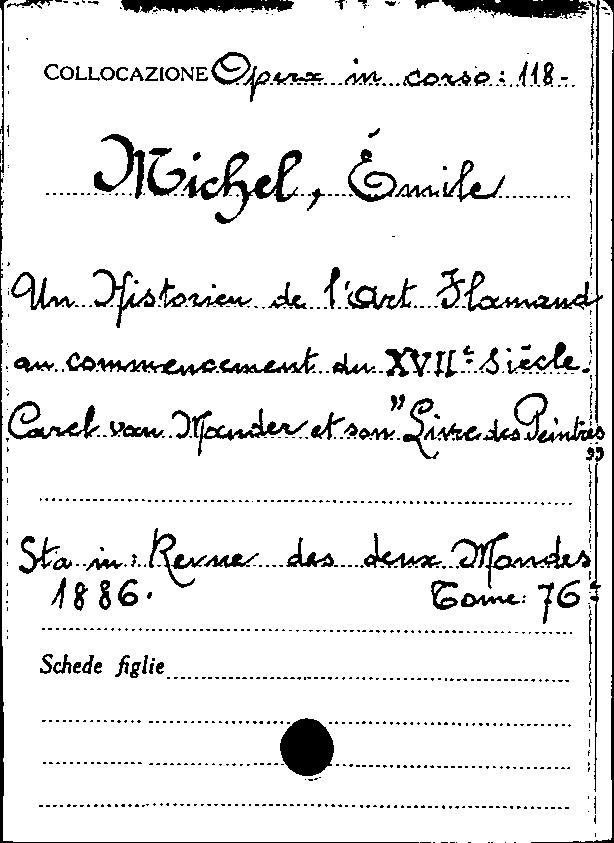 COLLOCAZIONE Opera in corso: 118-
Michel, Émile
Un Historien de l'Art Flamand
au commencement du XVIIe Siècle.
Carel van Mander et son "Livre des Peintres"
Sta in: Revue des deux Mondes
1886. Tome: 76e
Schede figlie